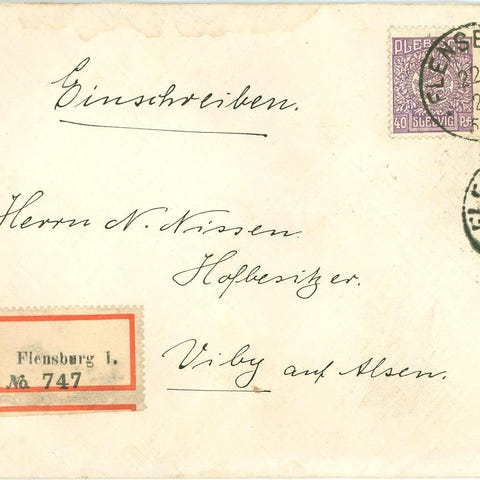 Einschreiben.
PLEB
40 SLESVIG PF
FLENSB
22
Herrn N. Nissen.
Hofbesitzer.
FLE
Flensburg 1.
№ 747
Viby auf Alsen.